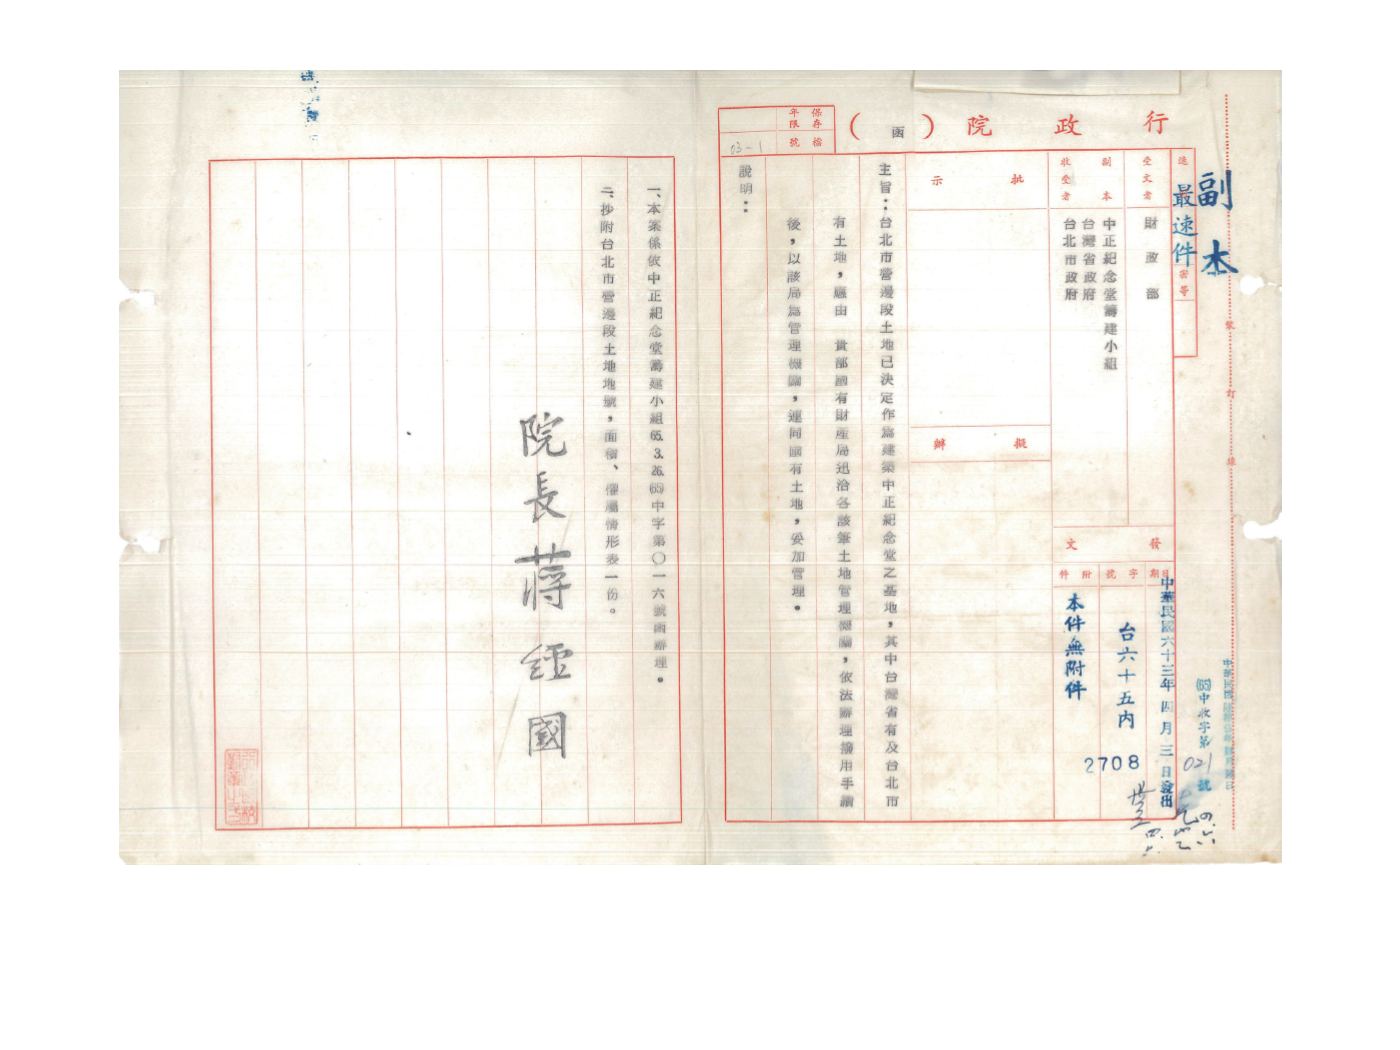 行政院(函)
保存年限
檔號
03-1
副本
最速件
速
密等
受文者
財政部
副本收受者
中正紀念堂籌建小組
台灣省政府
台北市政府
發文
日期
中華民國六十三年四月三日發出
字號
台六十五內
2708
附件
本件無附件
(65)中收字第021號
批示
擬辦
主旨：台北市營邊段土地已決定作為建築中正紀念堂之基地，其中台灣省有及台北市
有土地，應由　貴部國有財產局迅洽各該筆土地管理機關，依法辦理撥用手續
後，以該局為管理機關，連同國有土地，妥加管理。
說明：
一、本案係依中正紀念堂籌建小組65.3.26.(65)中字第〇一六號函辦理。
二、抄附台北市營邊段土地地號，面積、權屬情形表一份。
院長蔣經國
裝訂線